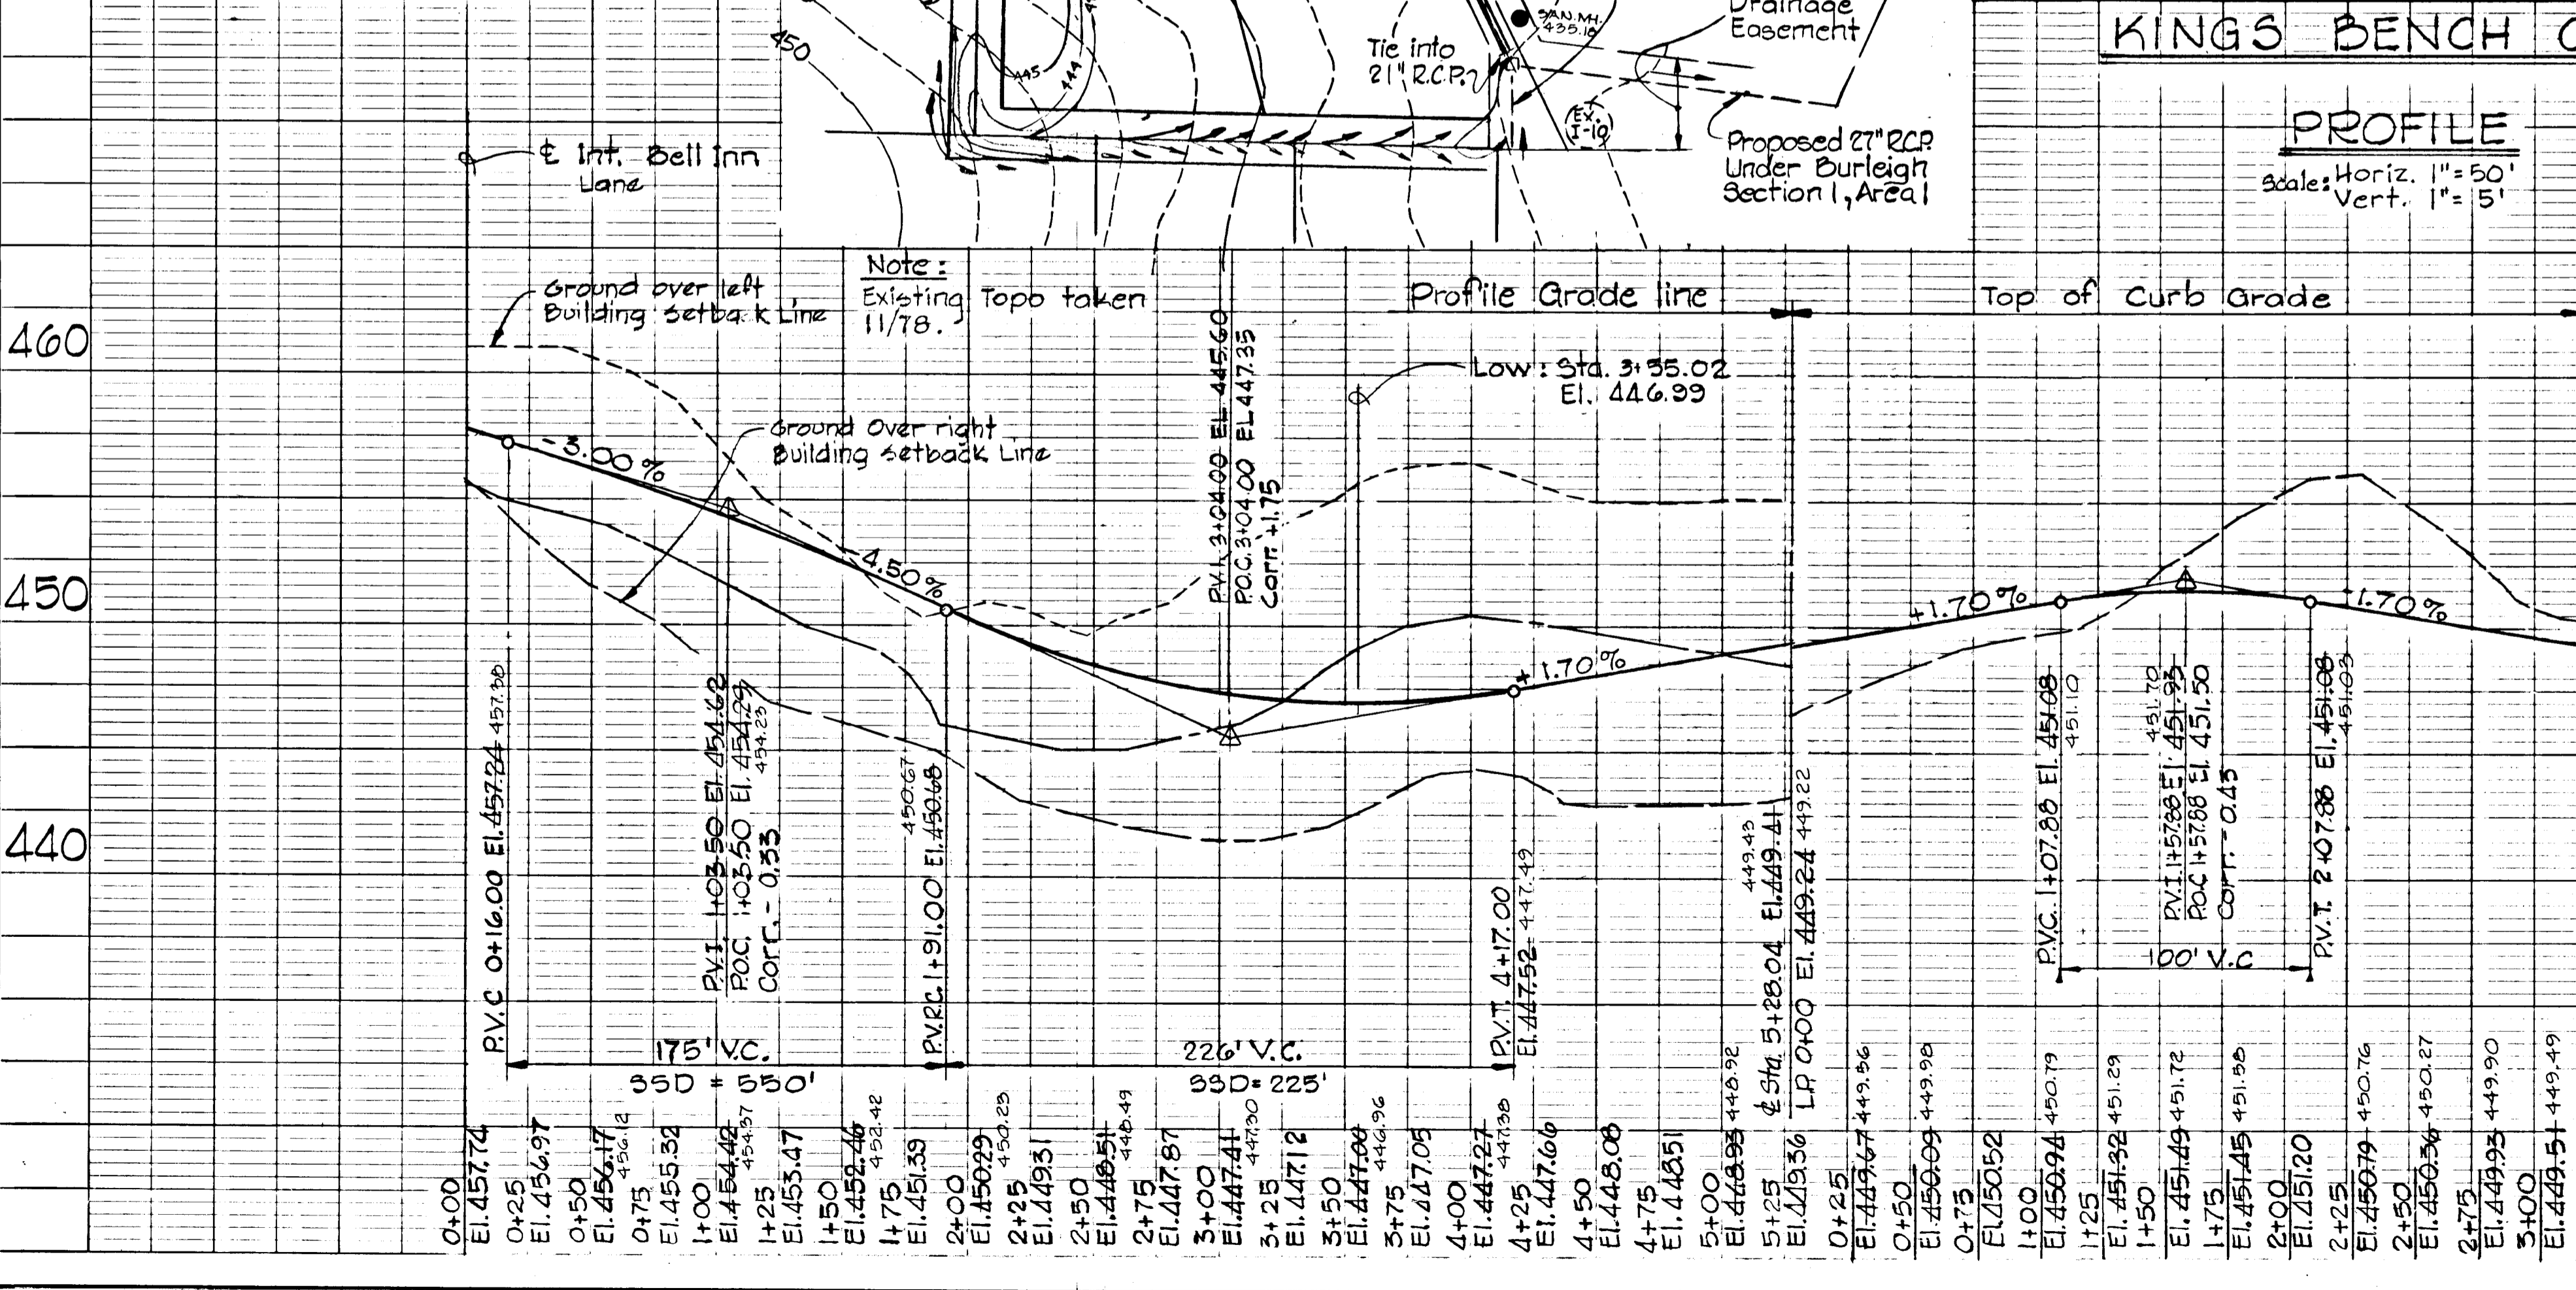 KINGS BENCH
PROFILE
Scale: Horiz. 1"=50'
Vert. 1"= 5'
450
445
444
Tie into
21" R.C.P.
SAN. MH.
435.18
Drainage
Easement
(Ex.
I-10)
Proposed 27" RCP
Under Burleigh
Section 1, Area 1
℄ Int. Bell Inn
Lane
Ground over left
Building Setback Line
Note:
Existing Topo taken
11/78.
Profile Grade line
Top of Curb Grade
460
450
440
Low: Sta. 3+55.02
El. 446.99
Ground Over right
Building Setback Line
-3.00%
-4.50%
+1.70%
+1.70%
-1.70%
P.V.C 0+16.00 El. 457.24 457.38
P.V.I. 1+03.50 El. 454.62
P.O.C. 1+03.50 El. 454.29
454.23
Corr. - 0.33
450.67
P.V.R.C. 1+91.00 El. 450.68
P.V.I. 3+04.00 EL 445.60
P.O.C. 3+04.00 EL 447.35
Corr. +1.75
P.V.T. 4+17.00
El. 447.52 447.49
449.43
℄ Sta. 5+28.04 El. 449.41
L.P. 0+00 El. 449.24 449.22
P.V.C. 1+07.88 El. 451.08
451.10
451.70
P.V.I. 1+57.88 El. 451.93
P.O.C 1+57.88 El. 451.50
Corr. - 0.43
P.V.T. 2+07.88 El. 451.08
451.03
175' V.C.
SSD = 550'
226' V.C.
SSD = 225'
100' V.C
0+00
El. 457.74
0+25
El. 456.97
0+50
El. 456.17
456.12
0+75
El. 455.32
1+00
El. 454.42
454.37
1+25
El. 453.47
1+50
El. 452.46
452.42
1+75
El. 451.39
2+00
El. 450.29
450.23
2+25
El. 449.31
2+50
El. 448.51
448.49
2+75
El. 447.87
3+00
El. 447.41
447.30
3+25
El. 447.12
3+50
El. 447.00
446.96
3+75
El. 447.05
4+00
El. 447.27
447.38
4+25
El. 447.66
4+50
El. 448.08
4+75
El. 448.51
5+00
El. 448.93 448.92
5+25
El. 449.36
0+25
El. 449.67 449.56
0+50
El. 450.09 449.98
0+75
El. 450.52
1+00
El. 450.94 450.79
1+25
El. 451.32 451.29
1+50
El. 451.49 451.72
1+75
El. 451.45 451.58
2+00
El. 451.20
2+25
El. 450.79 450.76
2+50
El. 450.36 450.27
2+75
El. 449.93 449.90
3+00
El. 449.51 449.49